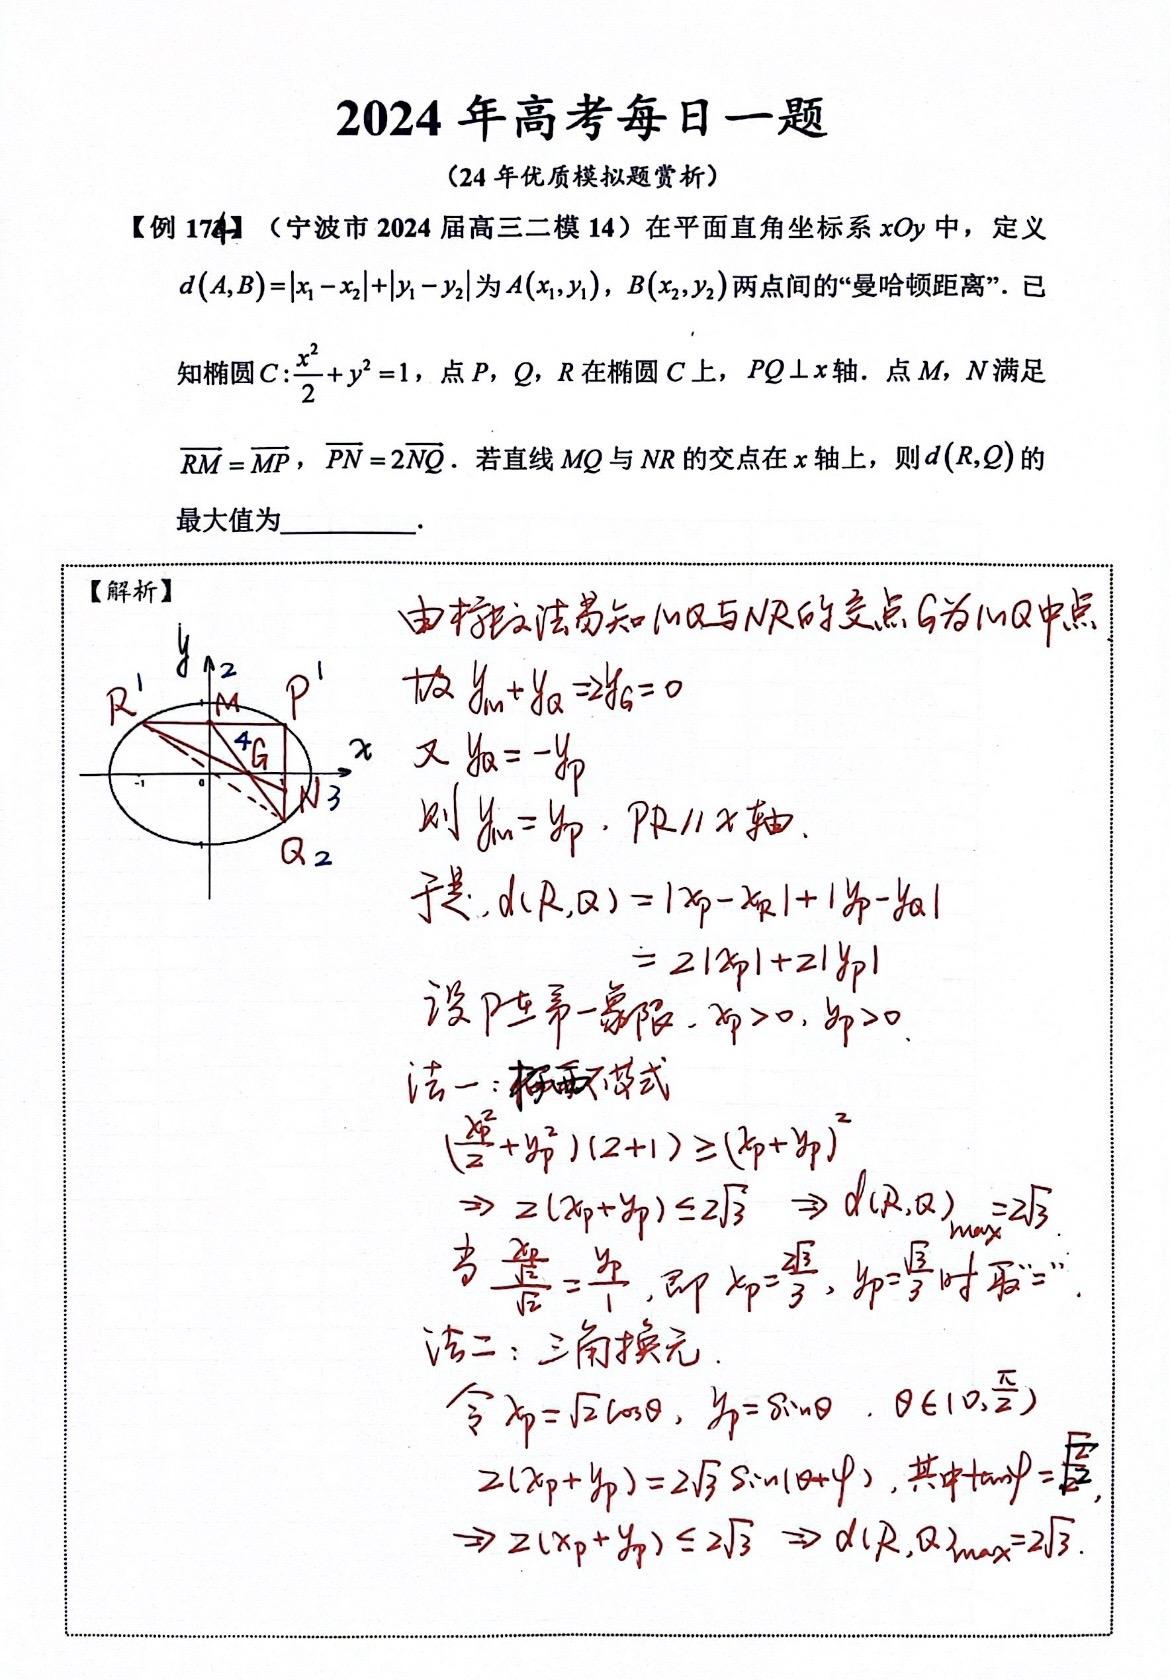 2024 年高考每日一题
（24 年优质模拟题赏析）
【例 174】（宁波市 2024 届高三二模 14）在平面直角坐标系 xOy 中，定义
d(A,B)=|x₁−x₂|+|y₁−y₂|为 A(x₁,y₁)，B(x₂,y₂)两点间的“曼哈顿距离”．已
知椭圆 C:x²/2+y²=1，点 P，Q，R 在椭圆 C 上，PQ⊥x 轴．点 M，N 满足
RM→=MP→，PN→=2NQ→．若直线 MQ 与 NR 的交点在 x 轴上，则 d(R,Q)的
最大值为__________．
【解析】
y 2
R 1 M P 1
4 G x
-1 0 N 3
Q 2
由梅氏法易知MQ与NR的交点G为MQ中点
故 y_M+y_Q=2y_G=0
又 y_Q=-y_P
则 y_M=y_P, PR//x轴.
于是, d(R,Q)=|x_P-x_R|+|y_P-y_Q|
=2|x_P|+2|y_P|
设P在第一象限, x_P>0, y_P>0.
法一:柯西不等式
(x_P²/2+y_P²)(2+1)≥(x_P+y_P)²
⇒ 2(x_P+y_P)≤2√3 ⇒ d(R,Q)max=2√3.
当 (x_P/√2)/√2=y_P/1, 即 x_P=2√3/3, y_P=√3/3时取“=”.
法二: 三角换元.
令 x_P=√2cosθ, y_P=sinθ. θ∈(0,π/2)
2(x_P+y_P)=2√3sin(θ+φ), 其中tanφ=√2,
⇒ 2(x_P+y_P)≤2√3 ⇒ d(R,Q)max=2√3.